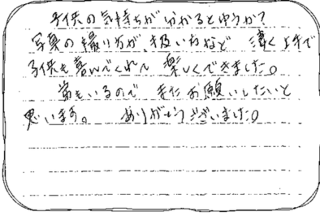 子供の気持ちが分かるとゆうか?
写真の撮り方が扱い方など 凄く上手で
子供も喜んでくれて 楽しくできました。
弟もいるので またお願いしたいと
思います。 ありがとうございました。